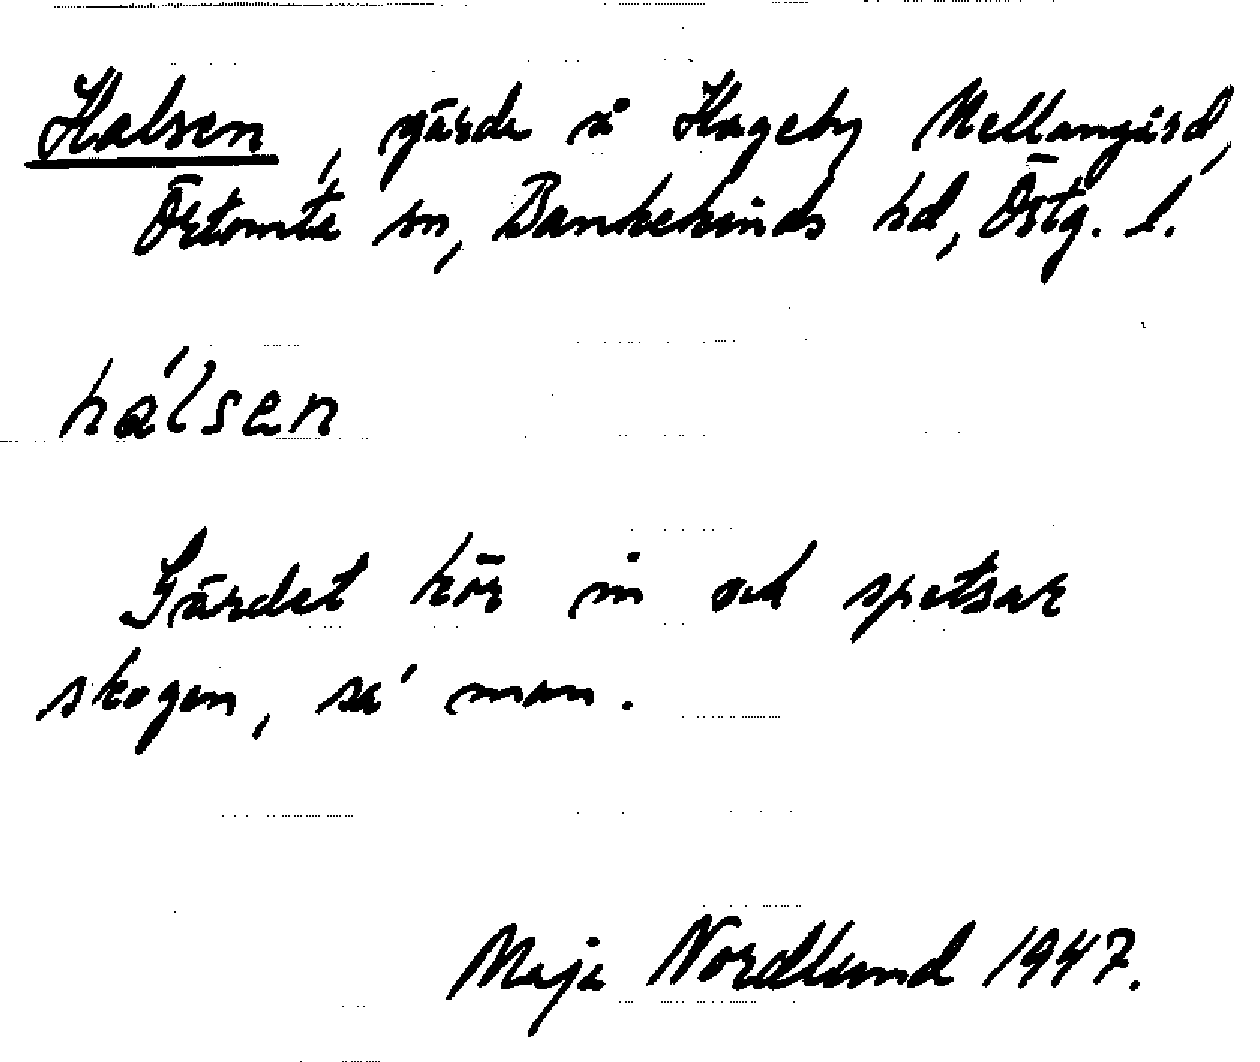 Halsen, gärde å Hageby Mellangård,
Örtomta sn, Bankekinds hd, Östg. l.
hálsen
Gärdet kör in och spetsar
skogen, sa' man.
Maja Nordlund 1947.